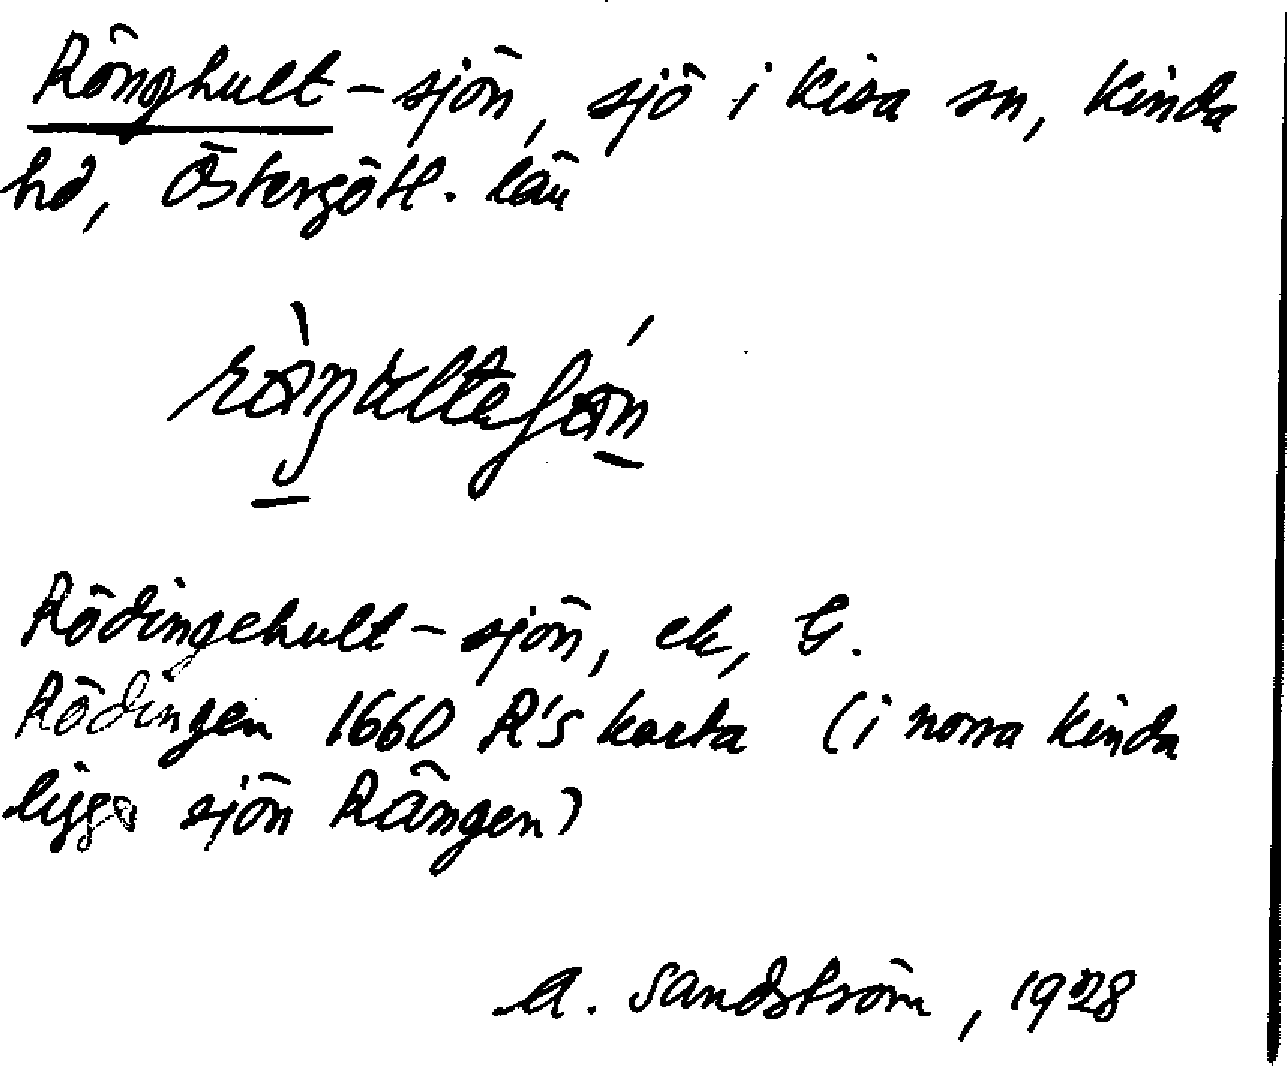 Rönghult-sjön, sjö i Kisa sn, Kinda
hd, Östergötl. län
Rödingehult-sjön, ek, G.
Rödingen 1660 R's karta (i norra Kinda
ligger sjön Rängen)
A. Sandström, 1928